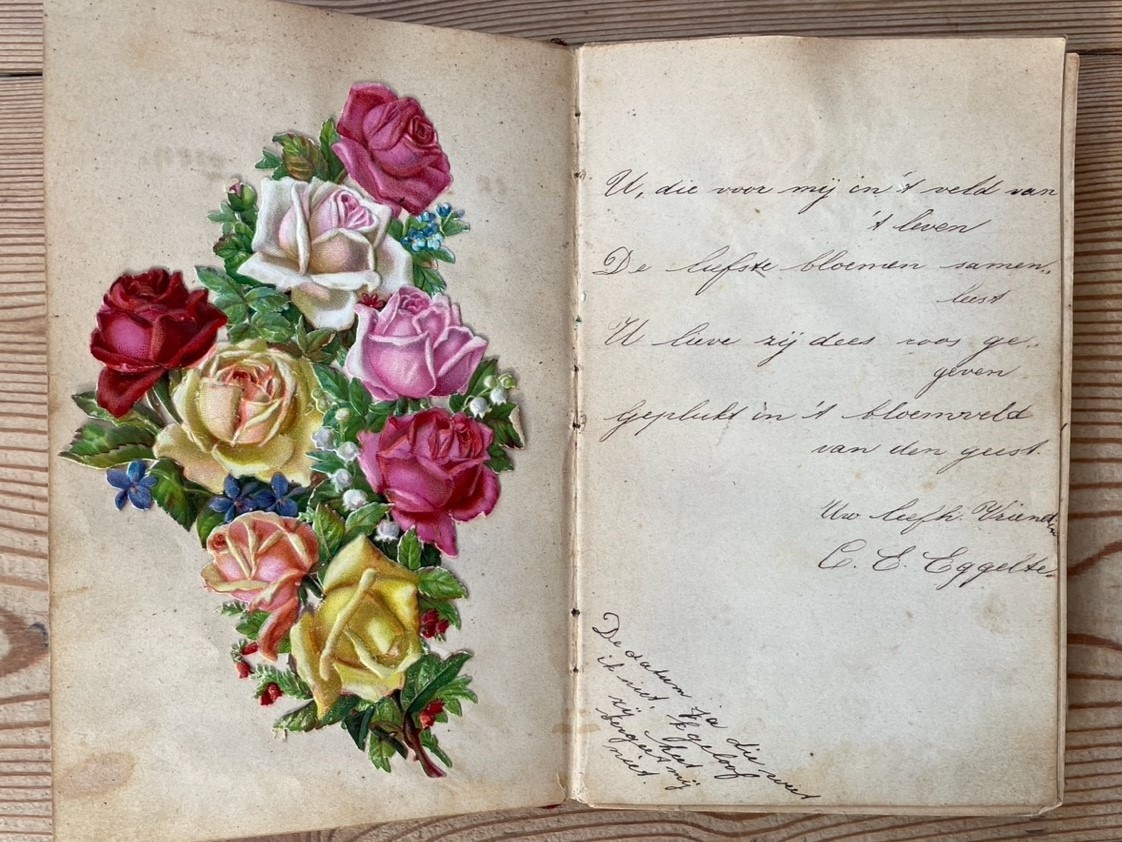 U, die voor mij in 't veld van
't leven
De liefste bloemen samen„
leest
U lieve zij dees roos ge„
geven
Geplukt in 't bloemveld
van den geest.
Uw liefh. Vriendin
C. E. Eggelte.
De datum ja die weet
ik niet, 'k geloof
zij heet
Vergeet mij
niet.